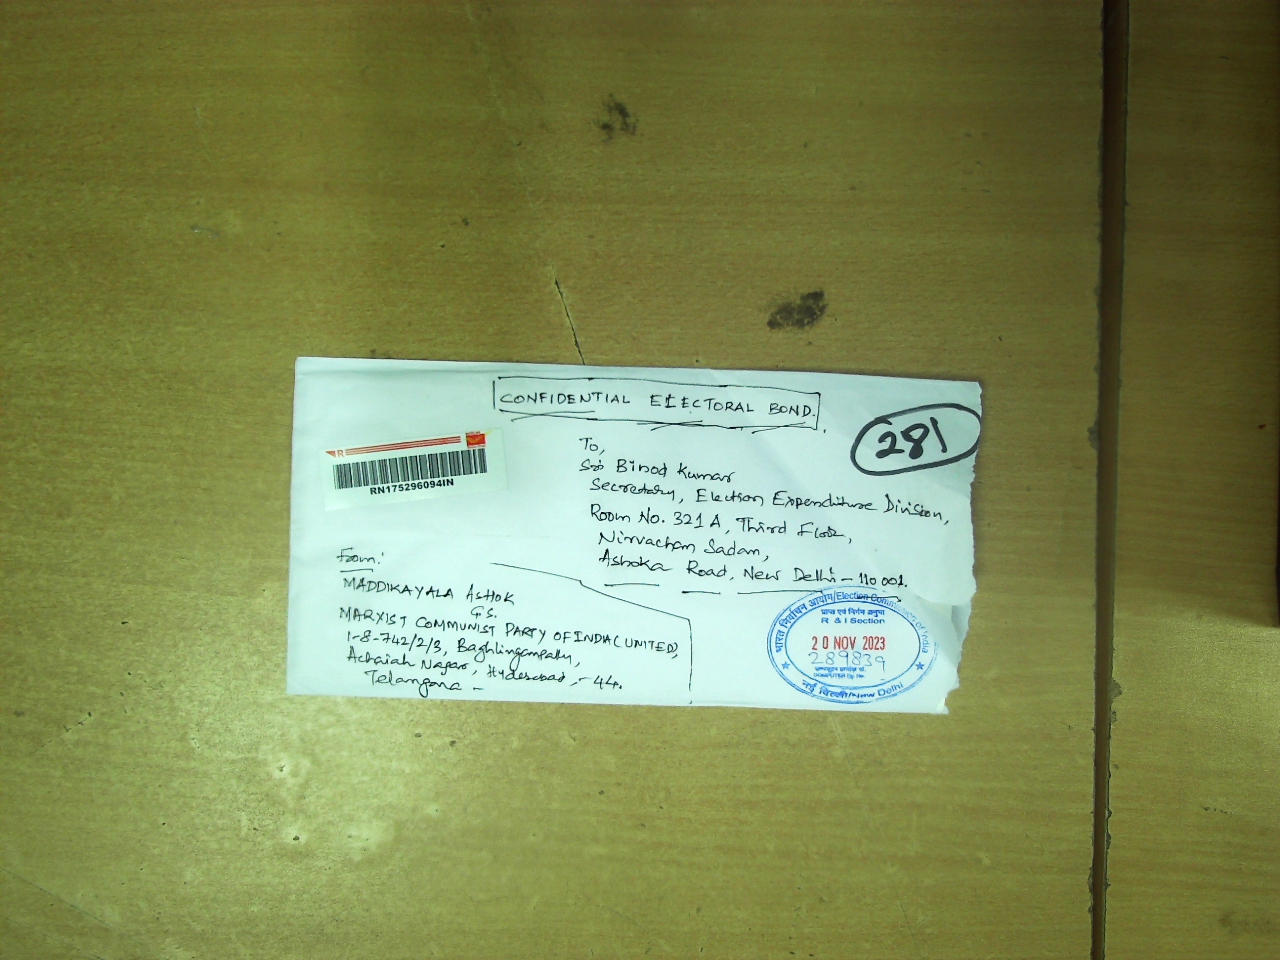 CONFIDENTIAL ELECTORAL BOND.
281
R
RN175296094IN
To,
Sri Binod Kumar
Secretary, Election Expenditure Division,
Room No. 321 A, Third Floor,
Nirvachan Sadan,
Ashoka Road, New Delhi - 110 001.
From:
MADDIKAYALA ASHOK
G.S.
MARXIST COMMUNIST PARTY OF INDIA (UNITED),
1-8-742/2/3, Baghlingampally,
Achaiah Nagar, Hyderabad, - 44.
Telangana -
भारत निर्वाचन आयोग/Election Commission of India
प्राप्त एवं निर्गम अनुभाग
R & I Section
20 NOV 2023
289839
COMPUTER Dy. No.
नई दिल्ली/New Delhi